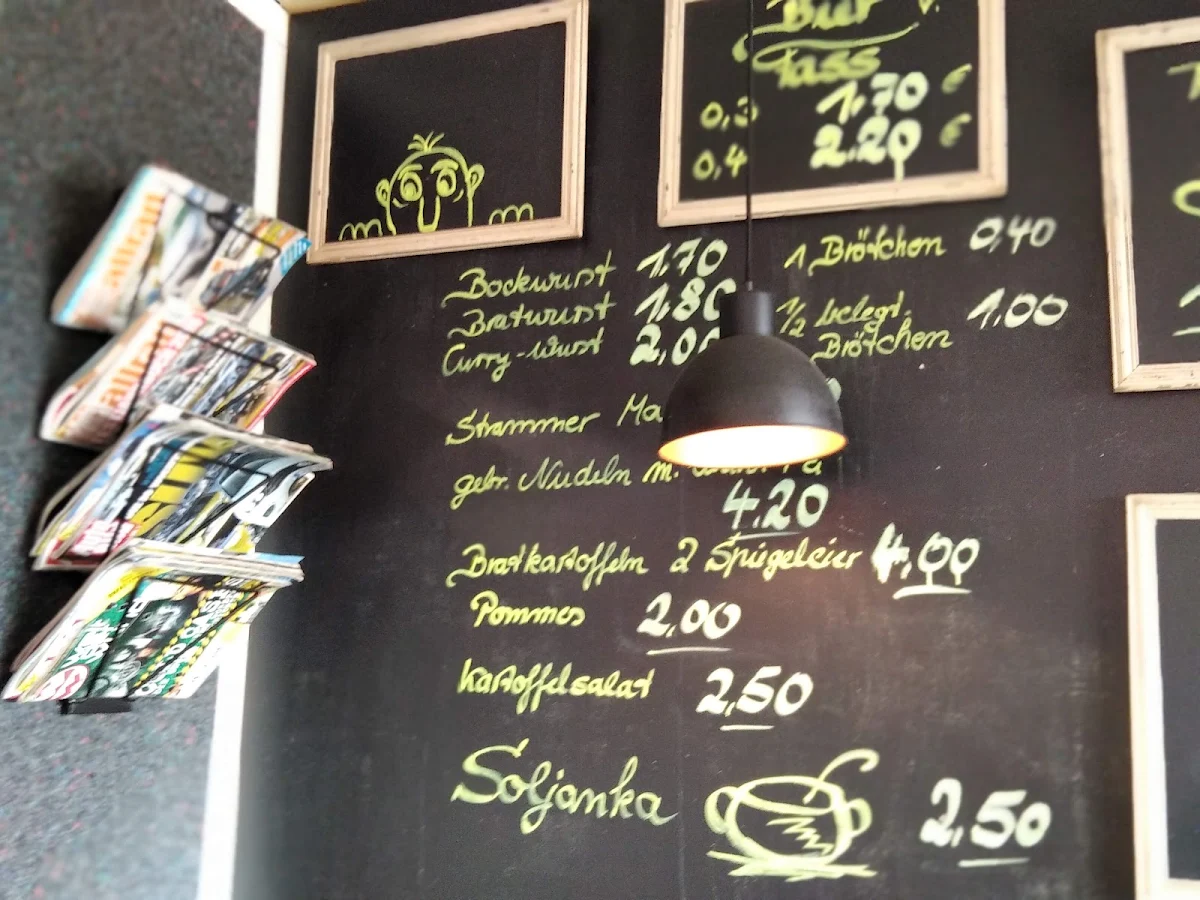 Bier
Fass
0,3 1,70 €
0,4 2.20 €
Bockwurst 1,70
Bratwurst 1,80
Curry-Wurst 2,00
1 Brötchen 0,40
1/2 belegt. 1,00
Brötchen
Strammer
gebr. Nudeln m.
4.20
Bratkartoffeln 2 Spiegeleier 4,00
Pommes 2,00
Kartoffelsalat 2,50
Soljanka 2,50